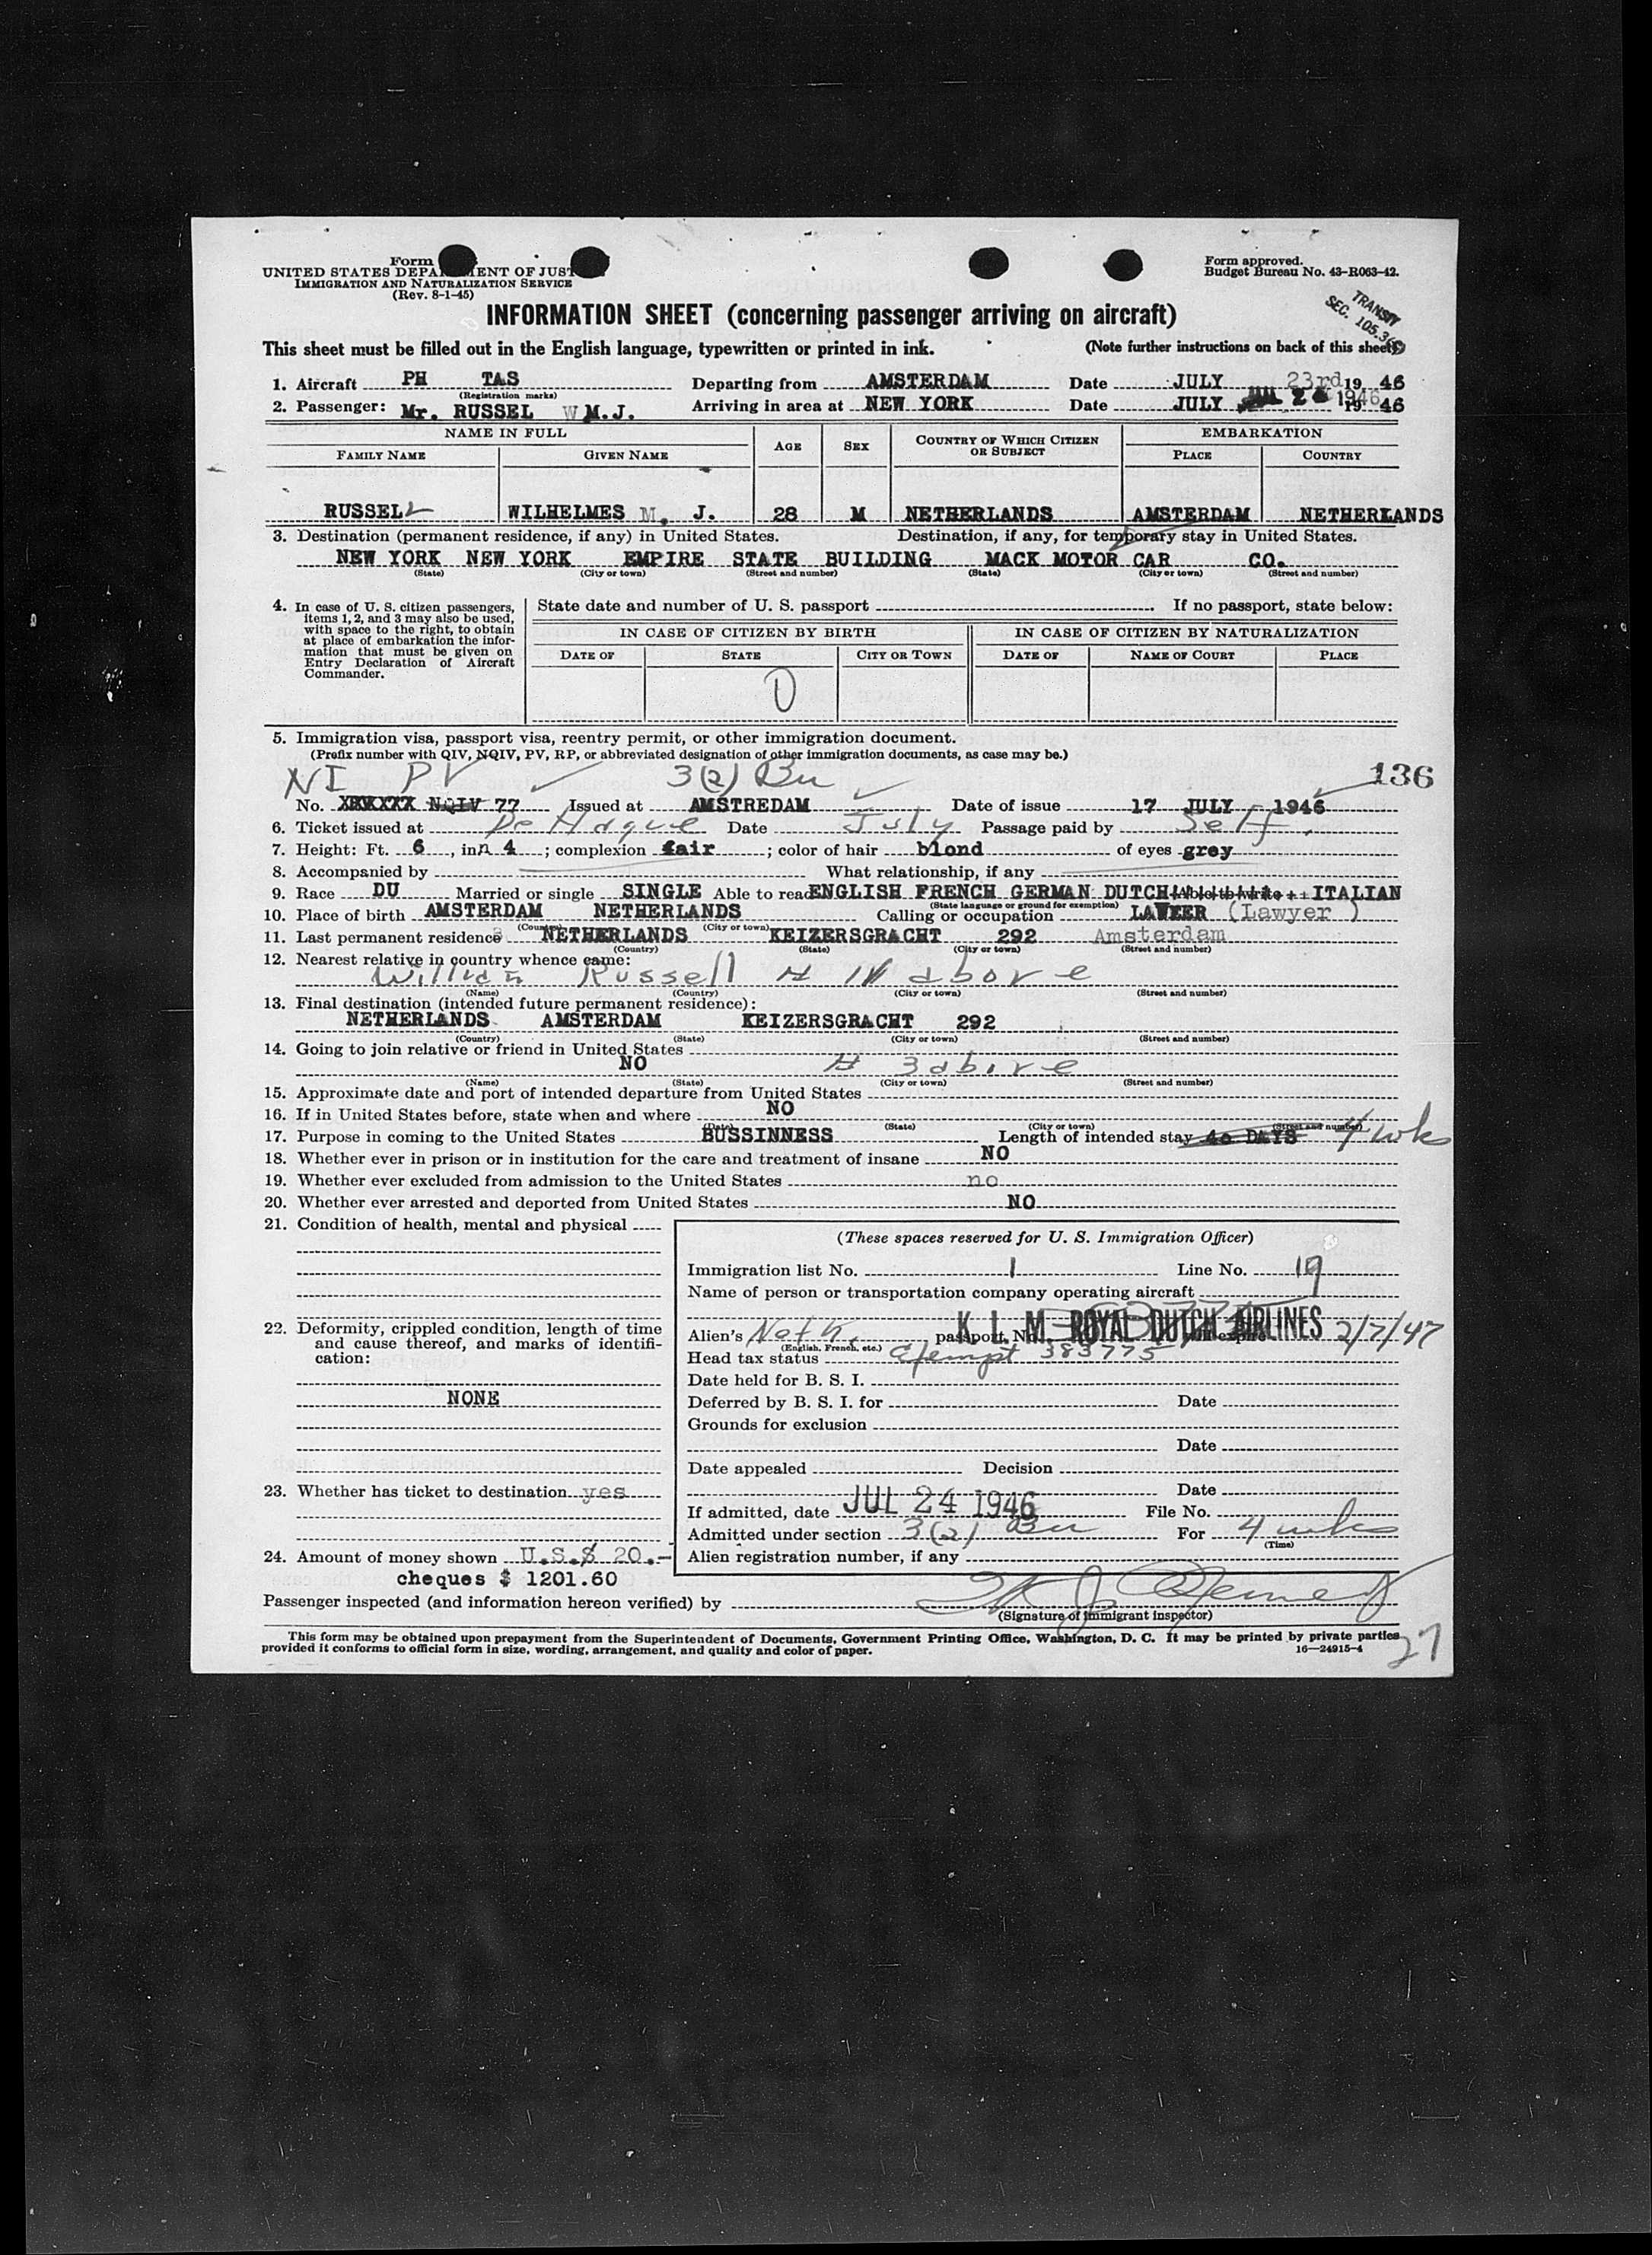 Form
UNITED STATES DEPA ENT OF JUST
IMMIGRATION AND NATURALIZATION SERVICE
(Rev. 8-1-45)
Form approved.
Budget Bureau No. 43-R063-42.
TRANSIT
SEC. 105.3
INFORMATION SHEET (concerning passenger arriving on aircraft)
This sheet must be filled out in the English language, typewritten or printed in ink. (Note further instructions on back of this sheet)
1. Aircraft PH TAS Departing from AMSTERDAM Date JULY 23rd 19 46
(Registration marks)
2. Passenger: Mr. RUSSEL W M.J. Arriving in area at NEW YORK Date JULY 1946 19 46
NAME IN FULL AGE SEX COUNTRY OF WHICH CITIZEN OR SUBJECT EMBARKATION
FAMILY NAME GIVEN NAME PLACE COUNTRY
RUSSELL WILHELMES M. J. 28 M NETHERLANDS AMSTERDAM NETHERLANDS
3. Destination (permanent residence, if any) in United States. Destination, if any, for temporary stay in United States.
NEW YORK NEW YORK EMPIRE STATE BUILDING MACK MOTOR CAR CO.
(State) (City or town) (Street and number) (State) (City or town) (Street and number)
4. In case of U. S. citizen passengers, items 1, 2, and 3 may also be used, with space to the right, to obtain at place of embarkation the information that must be given on Entry Declaration of Aircraft Commander.
State date and number of U. S. passport If no passport, state below:
IN CASE OF CITIZEN BY BIRTH IN CASE OF CITIZEN BY NATURALIZATION
DATE OF STATE CITY OR TOWN DATE OF NAME OF COURT PLACE
5. Immigration visa, passport visa, reentry permit, or other immigration document.
(Prefix number with QIV, NQIV, PV, RP, or abbreviated designation of other immigration documents, as case may be.)
NI PV 3(2) Bu 136
No. XXXXXX NQIV 77 Issued at AMSTREDAM Date of issue 17 JULY 1946
6. Ticket issued at De Hague Date July Passage paid by Self.
7. Height: Ft. 6, inn 4; complexion fair; color of hair blond of eyes grey
8. Accompanied by What relationship, if any
9. Race DU Married or single SINGLE Able to read ENGLISH FRENCH GERMAN DUTCH Able to write ITALIAN
(State language or ground for exemption)
10. Place of birth AMSTERDAM NETHERLANDS Calling or occupation LAWEER (Lawyer )
(Country) (City or town)
11. Last permanent residence NETHERLANDS KEIZERSGRACHT 292 Amsterdam
(Country) (State) (City or town) (Street and number)
12. Nearest relative in country whence came:
Russell # 11 above
(Name) (Country) (City or town) (Street and number)
13. Final destination (intended future permanent residence):
NETHERLANDS AMSTERDAM KEIZERSGRACHT 292
(Country) (State) (City or town) (Street and number)
14. Going to join relative or friend in United States
NO # 3 above
(Name) (State) (City or town) (Street and number)
15. Approximate date and port of intended departure from United States
16. If in United States before, state when and where NO
(Date) (State) (City or town) (Street and number)
17. Purpose in coming to the United States BUSSINNESS Length of intended stay 40 DAYS 4 wks
18. Whether ever in prison or in institution for the care and treatment of insane NO
19. Whether ever excluded from admission to the United States no
20. Whether ever arrested and deported from United States NO
21. Condition of health, mental and physical
22. Deformity, crippled condition, length of time and cause thereof, and marks of identification:
NONE
23. Whether has ticket to destination yes
24. Amount of money shown U.S.$ 20.-
cheques $ 1201.60
(These spaces reserved for U. S. Immigration Officer)
Immigration list No. 1 Line No. 19
Name of person or transportation company operating aircraft
K. L. M. ROYAL DUTCH AIRLINES
Alien's passport No. 2/7/47
(English, French, etc.)
Head tax status Exempt 383775
Date held for B. S. I.
Deferred by B. S. I. for Date
Grounds for exclusion
Date
Date appealed Decision
Date
If admitted, date JUL 24 1946 File No.
Admitted under section 3(2) Bu For 4 wks
(Time)
Alien registration number, if any
Passenger inspected (and information hereon verified) by
(Signature of immigrant inspector)
This form may be obtained upon prepayment from the Superintendent of Documents, Government Printing Office, Washington, D. C. It may be printed by private parties
provided it conforms to official form in size, wording, arrangement, and quality and color of paper. 16—24915-4
27